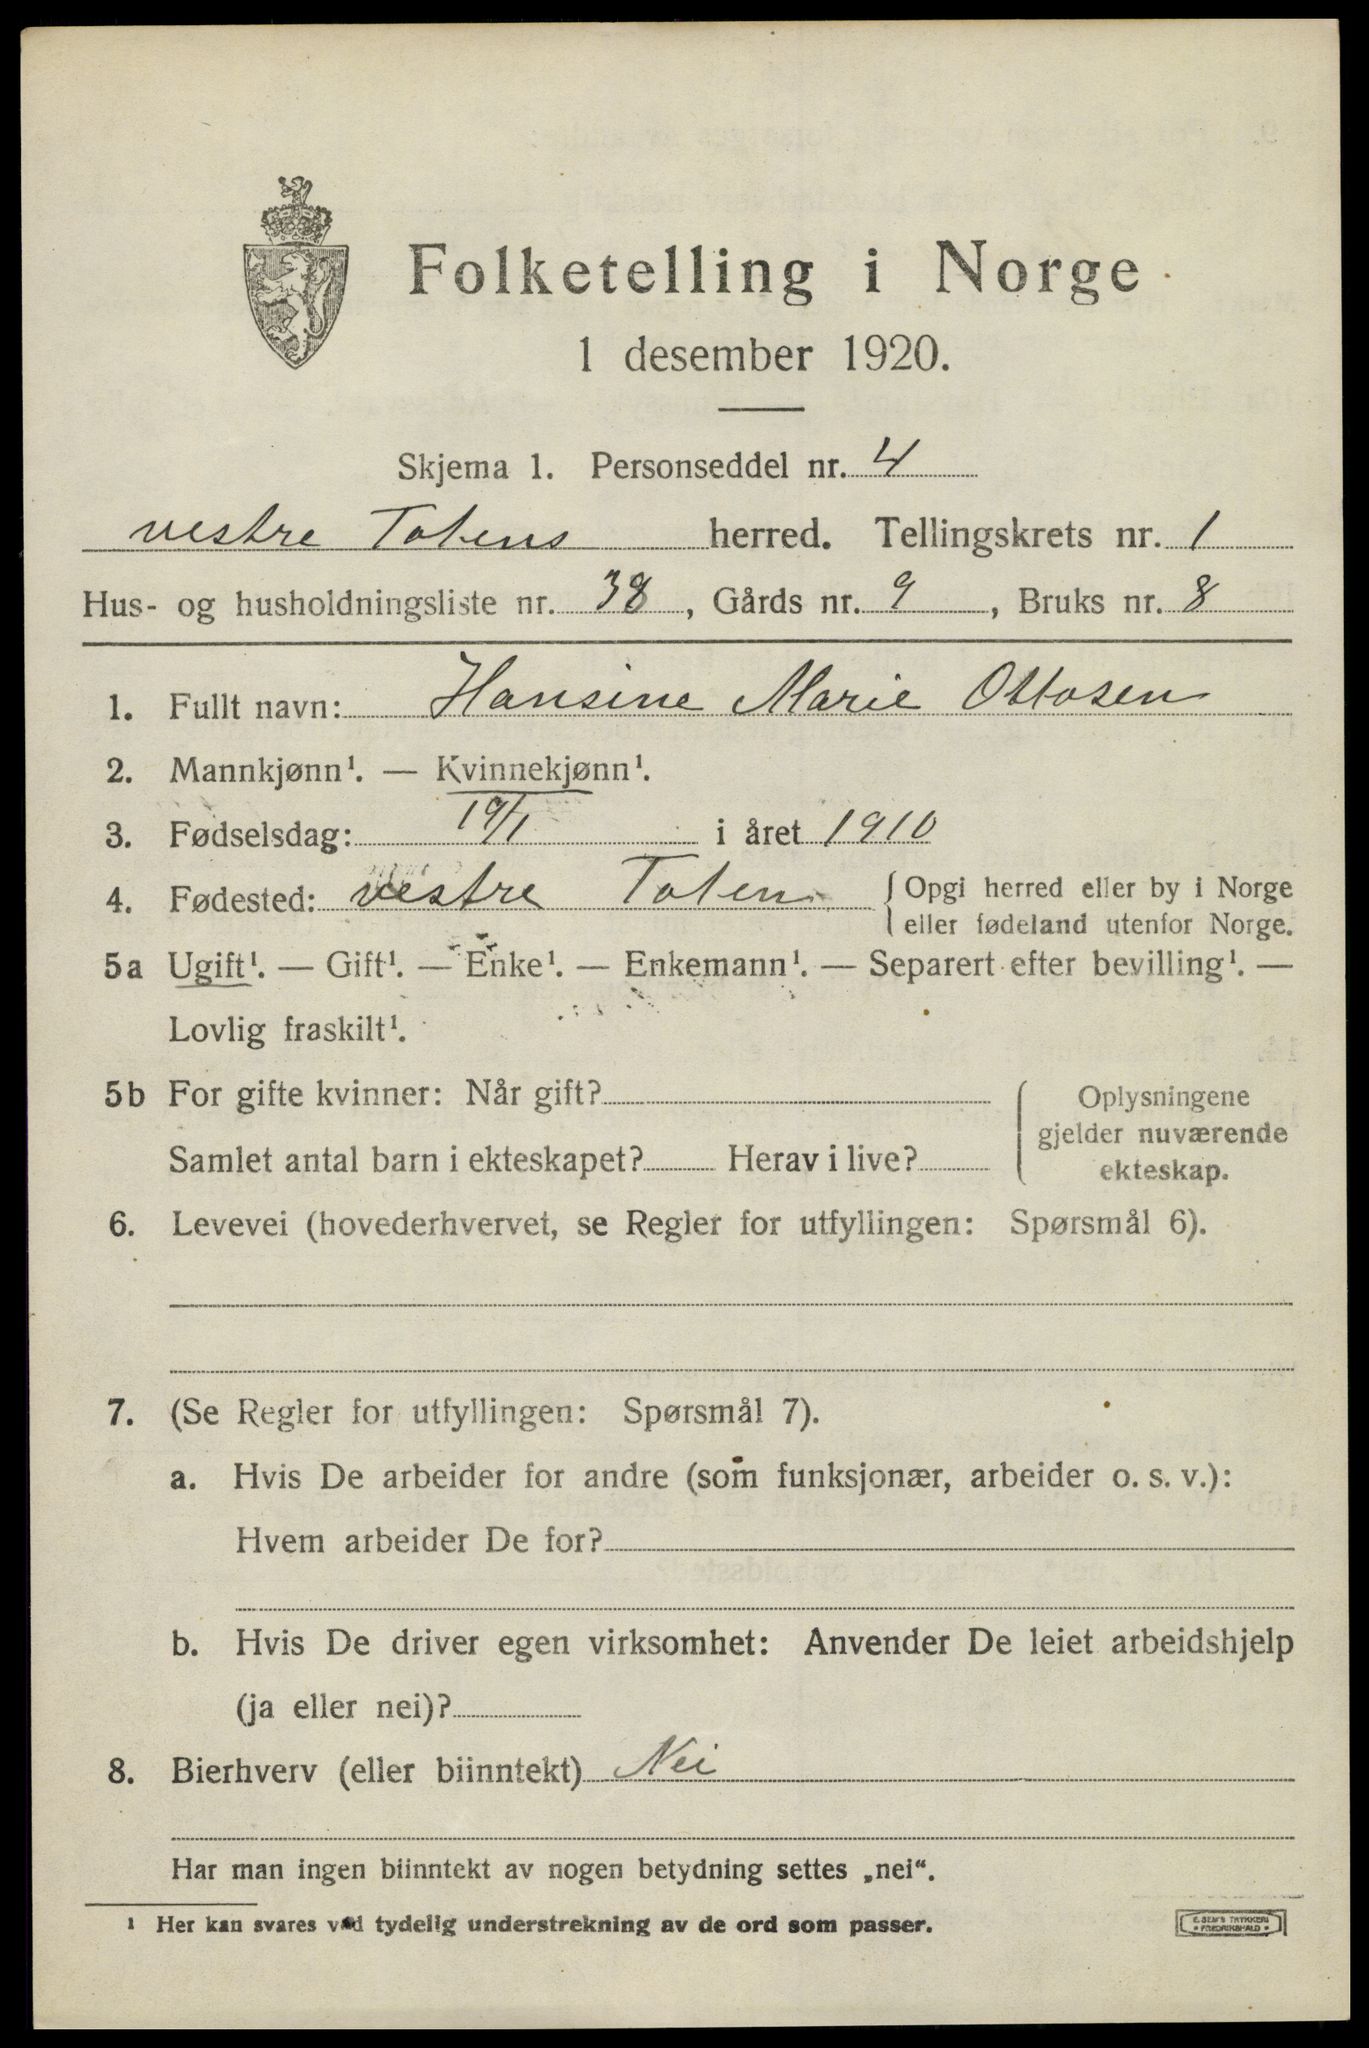 Folketelling i Norge
1 desember 1920.
Skjema 1. Personseddel nr. 4
vestre Totens herred. Tellingskrets nr. 1
Hus- og husholdningsliste nr. 38, Gårds nr. 9, Bruks nr. 8
1. Fullt navn: Hansine Marie Ottosen
2. Mannkjønn¹. — Kvinnekjønn¹.
3. Fødselsdag: 19/1 i året 1910
4. Fødested: vestre Toten { Opgi herred eller by i Norge
eller fødeland utenfor Norge.
5a Ugift¹. — Gift¹. — Enke¹. — Enkemann¹. — Separert efter bevilling¹. —
Lovlig fraskilt¹.
5b For gifte kvinner: Når gift?
Samlet antal barn i ekteskapet? Herav i live?
Oplysningene
gjelder nuværende
ekteskap.
6. Levevei (hovederhvervet, se Regler for utfyllingen: Spørsmål 6).
7. (Se Regler for utfyllingen: Spørsmål 7).
a. Hvis De arbeider for andre (som funksjonær, arbeider o. s. v.):
Hvem arbeider De for?
b. Hvis De driver egen virksomhet: Anvender De leiet arbeidshjelp
(ja eller nei)?
8. Bierhverv (eller biinntekt) Nei
Har man ingen biinntekt av nogen betydning settes „nei“.
¹ Her kan svares ved tydelig understrekning av de ord som passer.
E. SEM'S TRYKKERI
• FREDRIKSHALD •